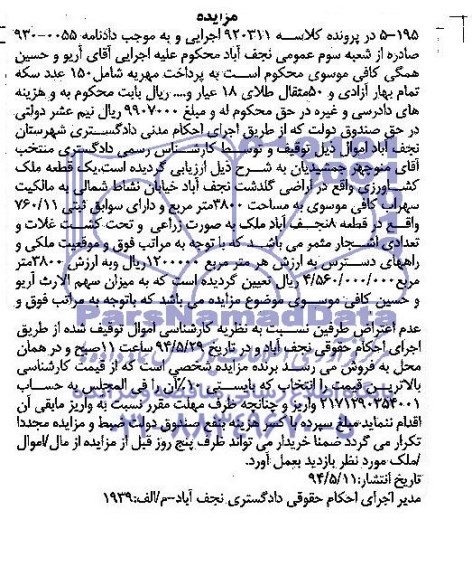 مزایده
۵-۱۹۵ در پرونده کلاسه ۹۲۰۳۱۱ اجرایی و به موجب دادنامه ۰۰۵۵-۹۳۰
صادره از شعبه سوم عمومی نجف آباد محکوم علیه اجرایی آقای آریو و حسین
همگی کافی موسوی محکوم است به پرداخت مهریه شامل۱۵۰ عدد سکه
تمام بهار آزادی و ۵۰مثقال طلای ۱۸ عیار و.... ریال بابت محکوم به و هزینه
های دادرسی و غیره در حق محکوم له و مبلغ ۹۹۰۷۰۰۰ ریال نیم عشر دولتی
در حق صندوق دولت که از طریق اجرای احکام مدنی دادگستری شهرستان
نجف آباد اموال ذیل توقیف و توسط کارشناس رسمی دادگستری منتخب
آقای منوچهر جمشیدیان به شرح ذیل ارزیابی گردیده است.یک قطعه ملک
کشاورزی واقع در اراضی گلدشت نجف آباد خیابان نشاط شمالی به مالکیت
سهراب کافی موسوی به مساحت ۳۸۰۰متر مربع و دارای سوابق ثبتی ۷۶۰/۱۱
واقع در قطعه ۸نجف آباد ملک به صورت زراعی و تحت کشت غلات و
تعدادی اشجار مثمر می باشد که با توجه به مراتب فوق و موقعیت ملکی و
راههای دسترس به ارزش هر متر مربع ۱۲۰۰۰۰۰ ریال وبه ارزش ۳۸۰۰متر
مربع ۴/۵۶۰/۰۰۰/۰۰۰ ریال تعیین گردیده است که به میزان سهم الارث آریو
و حسین کافی موسوی موضوع مزایده می باشد که باتوجه به مراتب فوق و
ParsNamadData
عدم اعتراض طرفین نسبت به نظریه کارشناسی اموال توقیف شده از طریق
اجرای احکام حقوقی نجف آباد و در تاریخ ۹۴/۵/۲۹ ساعت ۱۱صبح و در همان
محل به فروش می رسد برنده مزایده شخصی است که از قیمت کارشناسی
بالاترین قیمت را انتخاب که بایستی ۱۰٪آن را فی المجلس به حساب
۲۱۷۱۲۹۰۳۵۴۰۰۱ واریز و چنانچه ظرف مهلت مقرر نسبت به واریز مابقی آن
اقدام ننماید مبلغ سپرده با کسر هزینه بنفع صندوق دولت ضبط و مزایده مجددا
تکرار می گردد ضمنا خریدار می تواند ظرف پنج روز قبل از مزایده از مال/اموال
/ملک مورد نظر بازدید بعمل آورد.
تاریخ انتشار:۹۴/۵/۱۱
مدیر اجرای احکام حقوقی دادگستری نجف آباد-م/الف:۱۹۳۹